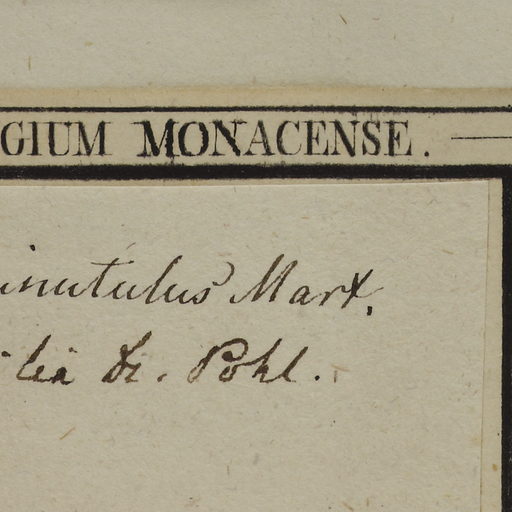 GIUM MONACENSE.
inutulus Mart.
ilia Dr. Pohl.